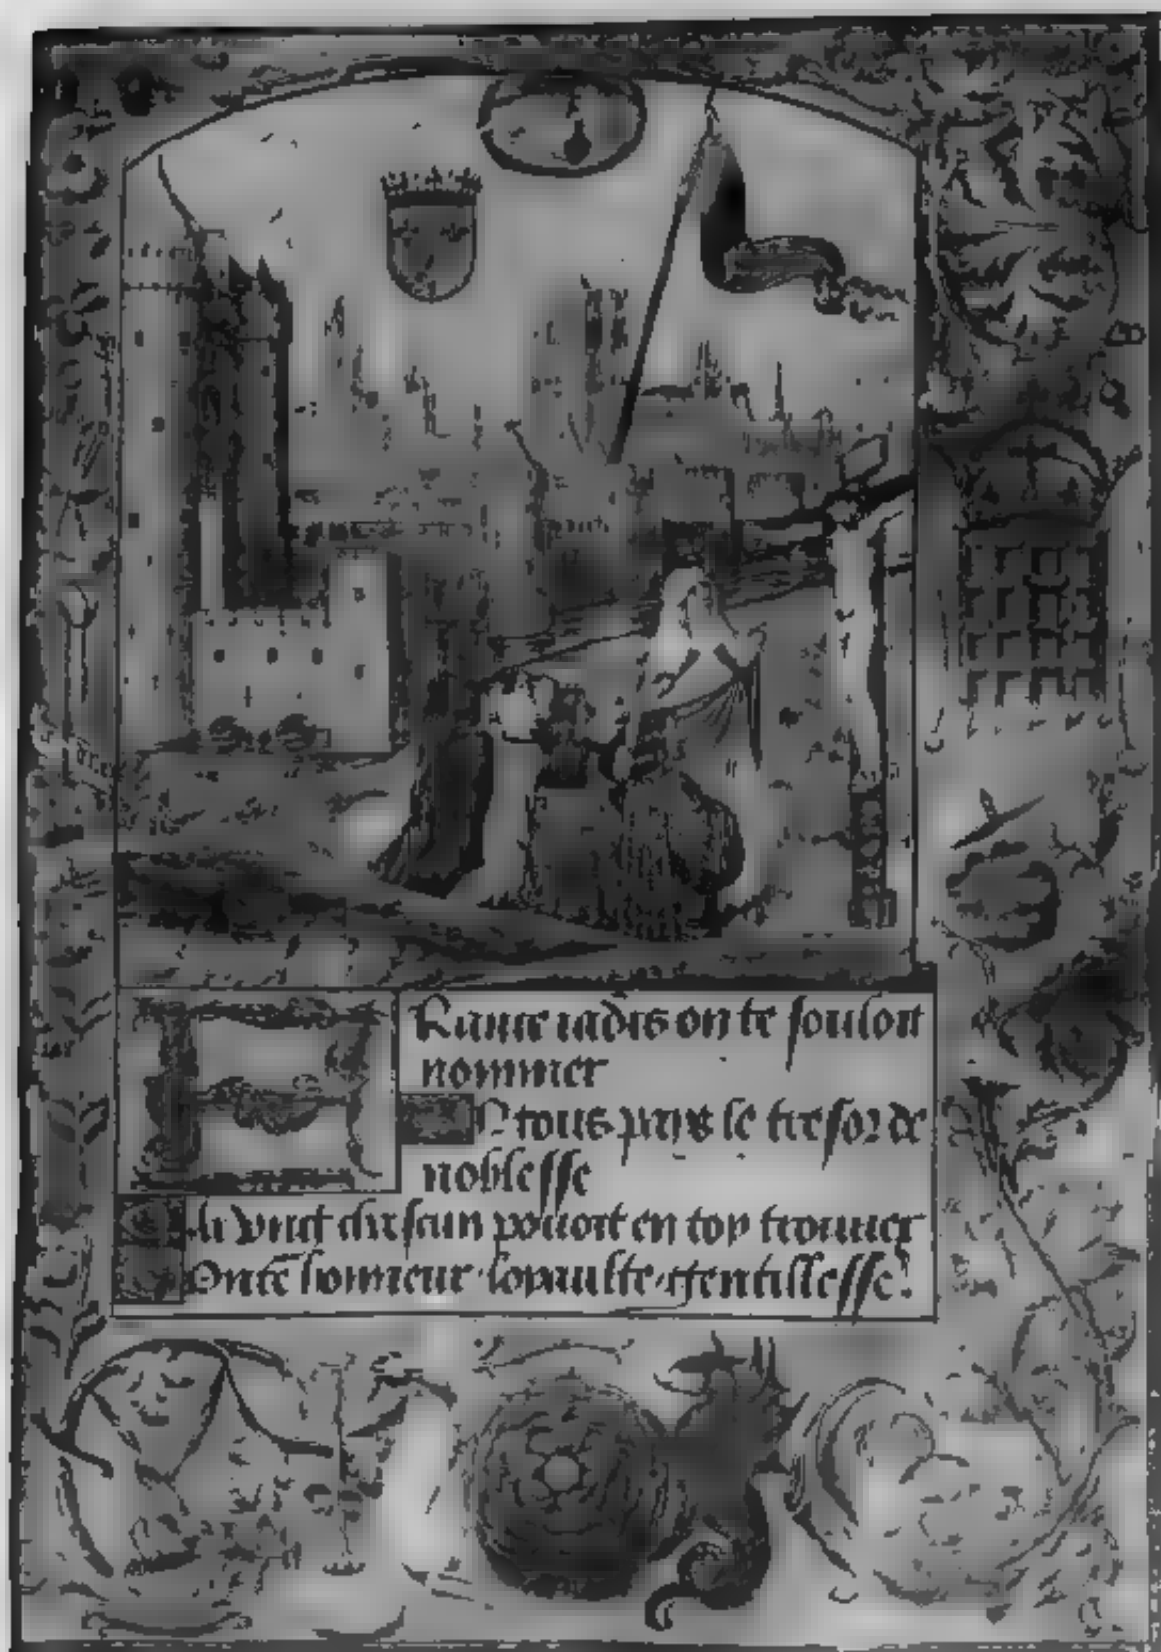 FRance iadis on te souloit
nommer
EN tous pays le tresor de
noblesse
CAr vng chascun pouoit en toy trouuer
BOnte honneur·loyaulte·gentillesse.